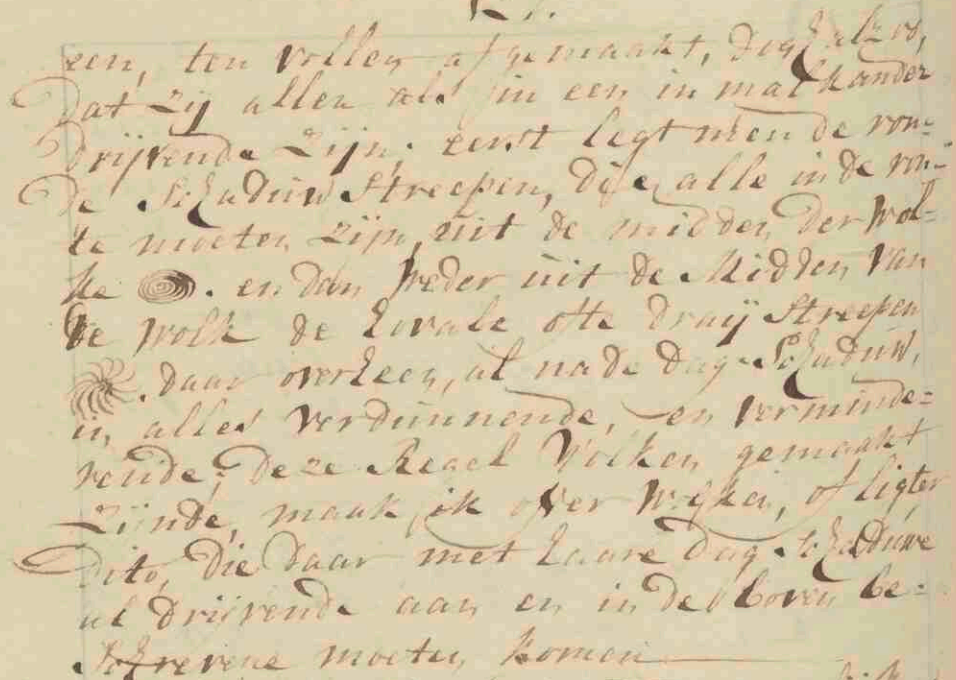 een, ten vollen afgemaakt, dogh alzoo,
Dat zij allen als in een in malkander
Drijvende zijn; eerst legt men de ron-
de Schaduw Streepen, die alle in de ron-
te moeten zijn, uit de midden der wol-
ke . en dan weder uit de Midden van
de wolk de hovale ofte draij Streepen
. daar overheen, al na de dag-Schaduw,
in alles verdunnende, en verminde=
rende; deze Regel Wolken gemaakt
zijnde, maak ik over wijken, of ligter
Dito, die daar met haare Dag-schaduwe
al drijvende aan en in de boven be=
schrevene moeten komen